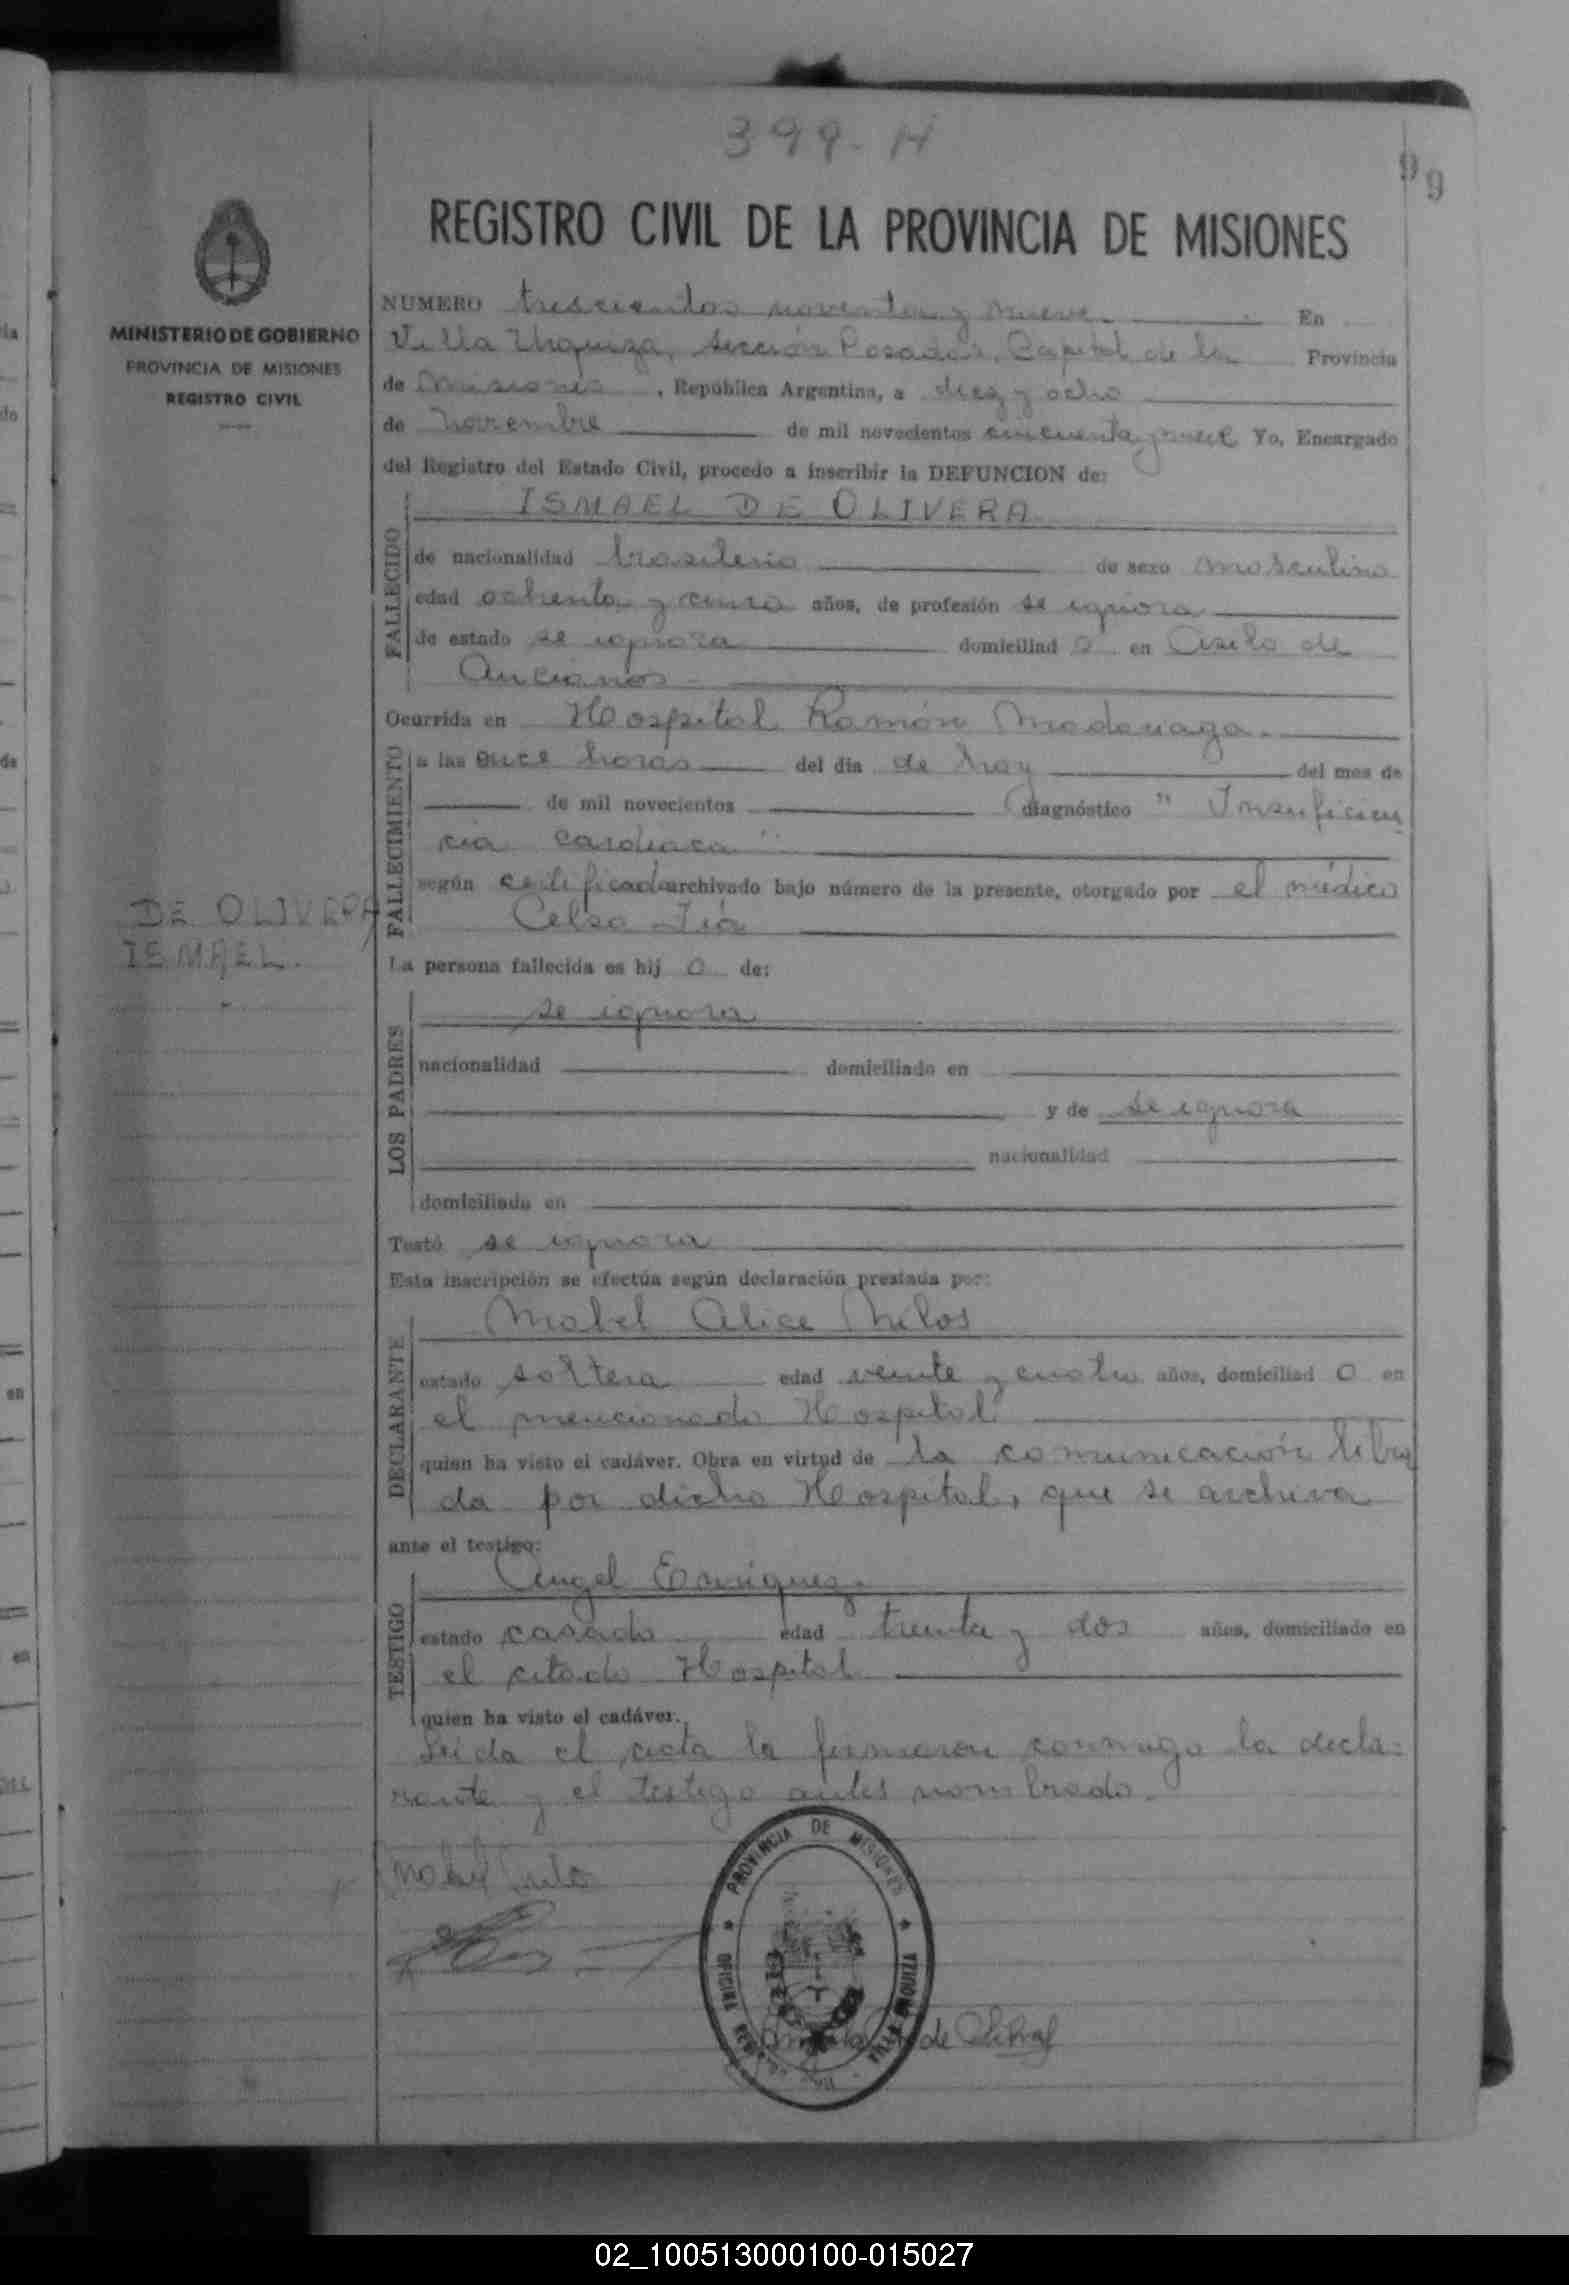 399-H
99
REGISTRO CIVIL DE LA PROVINCIA DE MISIONES
MINISTERIO DE GOBIERNO
PROVINCIA DE MISIONES
REGISTRO CIVIL
NUMERO trescientos noventa y nueve. En
Villa Urquiza, sección Posadas, Capital de la Provincia
de Misiones, República Argentina, a diez y ocho
de noviembre de mil novecientos cincuenta y Yo, Encargado
del Registro del Estado Civil, procedo a inscribir la DEFUNCION de:
ISMAEL DE OLIVERA
FALLECIDO
de nacionalidad brasileria de sexo masculino
edad ochenta y cinco años, de profesión se ignora
de estado se ignora domiciliad o en Asilo de
Ancianos
Ocurrida en Hospital Ramón Madariaga.
FALLECIMIENTO
a las once horas del día de hoy del mes de
de mil novecientos diagnóstico "Insuficien
cia cardiaca"
según certificado archivado bajo número de la presente, otorgado por el médico
Celso
DE OLIVERA
ISMAEL.
La persona fallecida es hij o de:
LOS PADRES
se ignora
nacionalidad domiciliado en
y de se ignora
nacionalidad
domiciliada en
Testó se ignora
Esta inscripción se efectúa según declaración prestada por:
DECLARANTE
Mabel Alice Milos
estado soltera edad veinte y cuatro años, domiciliad o en
el mencionado Hospital
quien ha visto el cadáver. Obra en virtud de la comunicación libra
da por dicho Hospital, que se archiva
ante el testigo:
TESTIGO
Angel Enriquez.
estado casado edad treinta y dos años, domiciliado en
el citado Hospital
quien ha visto el cadáver.
Leida el acta la firmaron conmigo la decla=
rante y el testigo antes nombrado.
PROVINCIA DE MISIONES
OFICINA
de
02_100513000100-015027